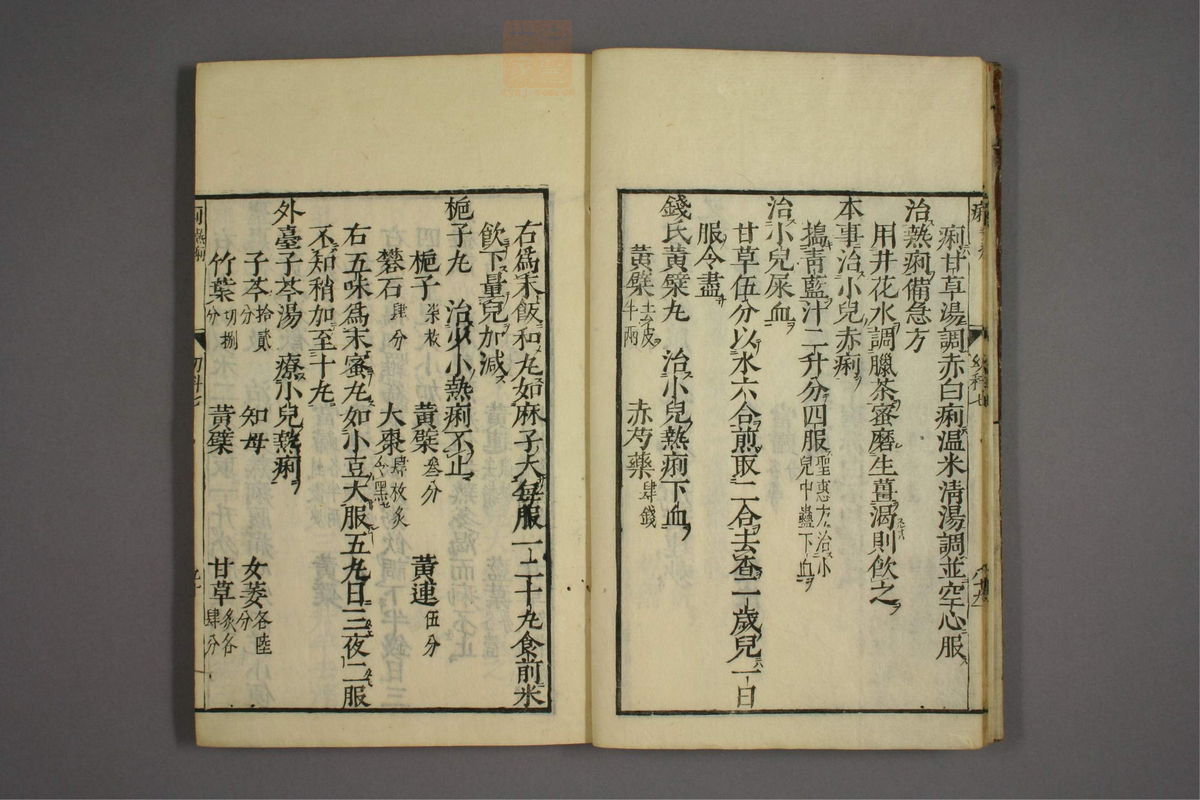 痢甘草湯調赤白痢温米清湯調並空心服
治熱痢備急方
用井花水調臘茶蜜磨生薑渴則飲之
本事治小兒赤痢
搗青藍汁二升分四服聖惠方治小兒中蠱下血
治小兒屎血
甘草伍分以水六合煎取二合去查一歲兒一日
服令盡
錢氏黃檗丸 治小兒熱痢下血
黃檗去皮半兩 赤芍藥肆錢
右為末飯和丸如麻子大每服一二十丸食前米
飲下量兒加減
梔子丸 治少小熱痢不止
梔子柒枚 黃檗叁分 黃連伍分
礬石肆分 大棗肆枚炙令黑
右五味為末蜜丸如小豆大服五丸日三夜二服
不知稍加至十丸
外臺子芩湯 療小兒熱痢
子芩拾貳分 知母 女萎各陸分
竹葉切捌分 黃檗 甘草炙各肆分